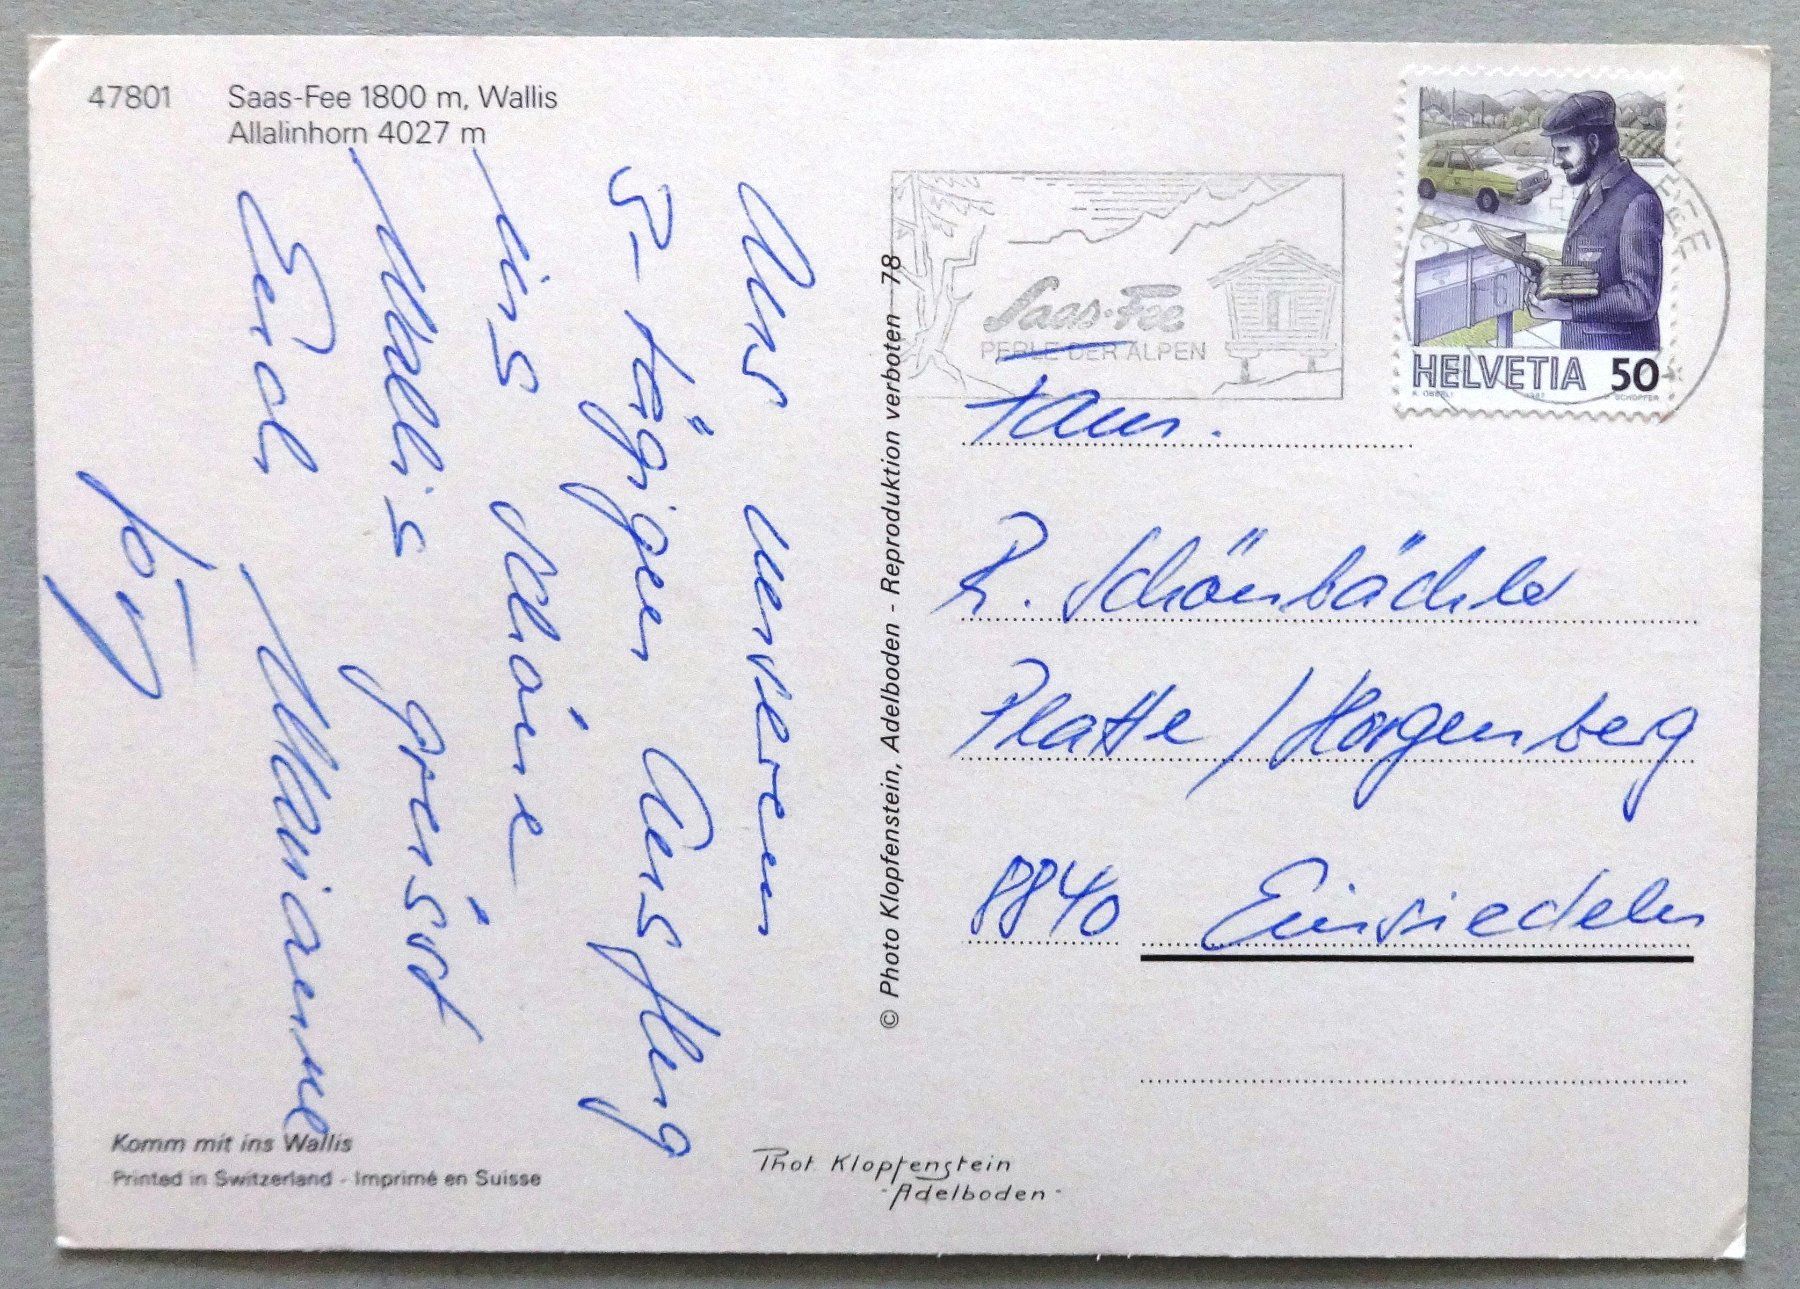 47801 Saas-Fee 1800 m, Wallis
Allalinhorn 4027 m
Aus unseren
5-tägigen Ausflug
ins schöne
Wallis grüsst
Euch Marianne
© Photo Klopfenstein, Adelboden - Reproduktion verboten 78
Saas-Fee
PERLE DER ALPEN
HELVETIA 50
K. OBERLI 1987 SCHOPFER
Fam.
R. Schönbächler
Platte / Horgenberg
8840 Einsiedeln
Komm mit ins Wallis
Printed in Switzerland - Imprimé en Suisse
Phot. Klopfenstein
- Adelboden -